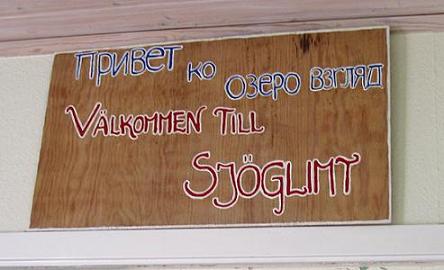 Привет ко озеро взгляд
Välkommen Till
Sjöglimt